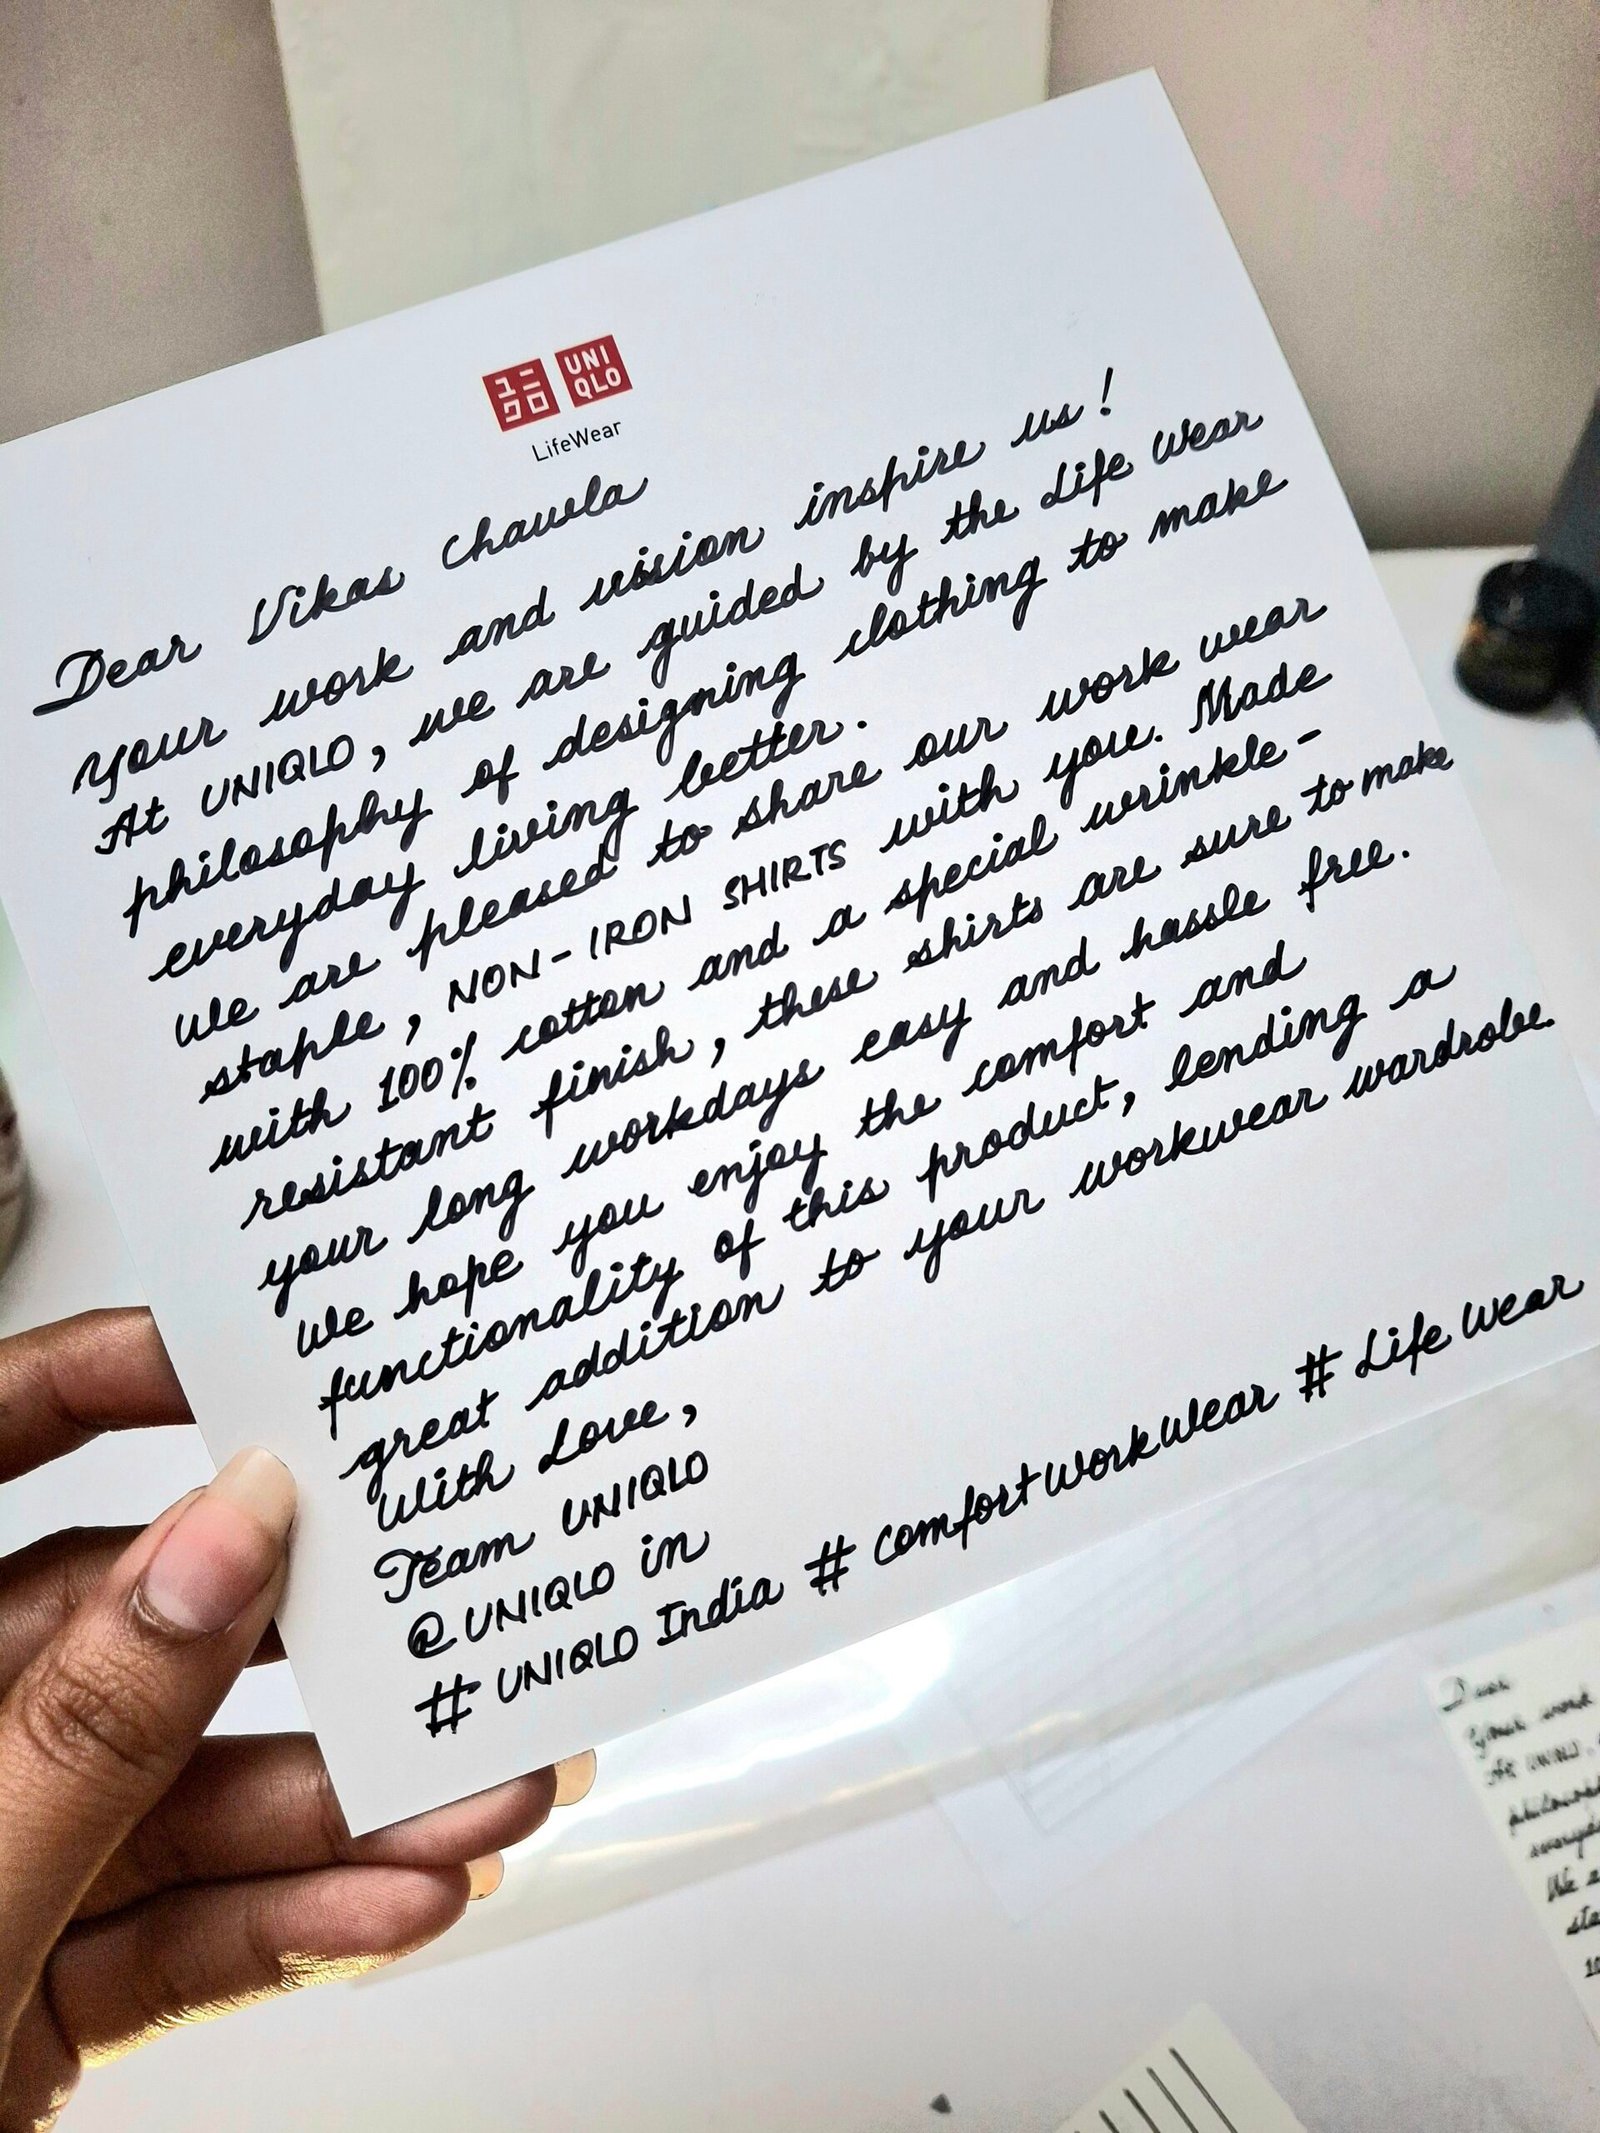 ユニクロ
UNI
QLO
LifeWear
Dear Vikas Chawla
your work and vision inspire us!
At UNIQLO, we are guided by the Life Wear
philosophy of designing clothing to make
everyday living better.
We are pleased to share our work wear
staple, NON-IRON SHIRTS with you. Made
with 100% cotton and a special wrinkle-
resistant finish, these shirts are sure to make
your long workdays easy and hassle free.
We hope you enjoy the comfort and
functionality of this product, lending a
great addition to your workwear wardrobe.
With Love,
Team UNIQLO
@UNIQLO in
# UNIQLO India # comfortworkwear # Life Wear
Dear
Your work
At UNIQLO,